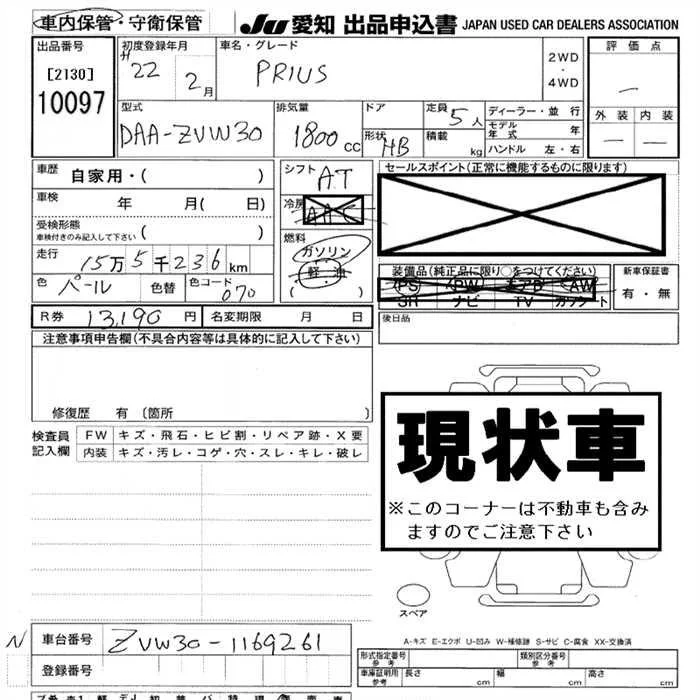 車内保管・守衛保管 JU 愛知 出品申込書 JAPAN USED CAR DEALERS ASSOCIATION
出品番号 [2130] 10097
初度登録年月 H22 2月
車名・グレード PRIUS
2WD・4WD
評価点 —
外装 — 内装 —
型式 DAA-ZVW30
排気量 1800cc
ドア 形状 HB
定員 5人 積載 kg
ディーラー・並行
モデル年式 年
ハンドル 左・右
車歴 自家用・( )
車検 年 月( 日)
受検形態 車検付きのみ記入して下さい ( )
走行 15万5千236km
色 パール 色替 色コード 070
シフト AT
冷房 AAC
燃料 ガソリン
軽・油
( )
セールスポイント(正常に機能するものに限ります)
装備品(純正品に限り○をつけてください)
(PS) (PW) エアB (AW)
SR ナビ TV ガックート
新車保証書 有・無
R券 13,190円 名変期限 月 日
後日品
注意事項申告欄(不具合内容等は具体的に記入して下さい)
修復歴 有〔箇所 〕
検査員記入欄
FW キズ・飛石・ヒビ割・リペア跡・X要
内装 キズ・汚レ・コゲ・穴・スレ・キレ・破レ
現状車
※このコーナーは不動車も含み
ますのでご注意下さい
スペア
A-キズ E-エクボ U-凹み W-補修跡 S-サビ C-腐食 XX-交換済
N 車台番号 ZVW30-1169261
登録番号
形式指定番号 参考 類別区分番号 参考
車庫証明用 参考 長さ cm 幅 cm 高さ cm